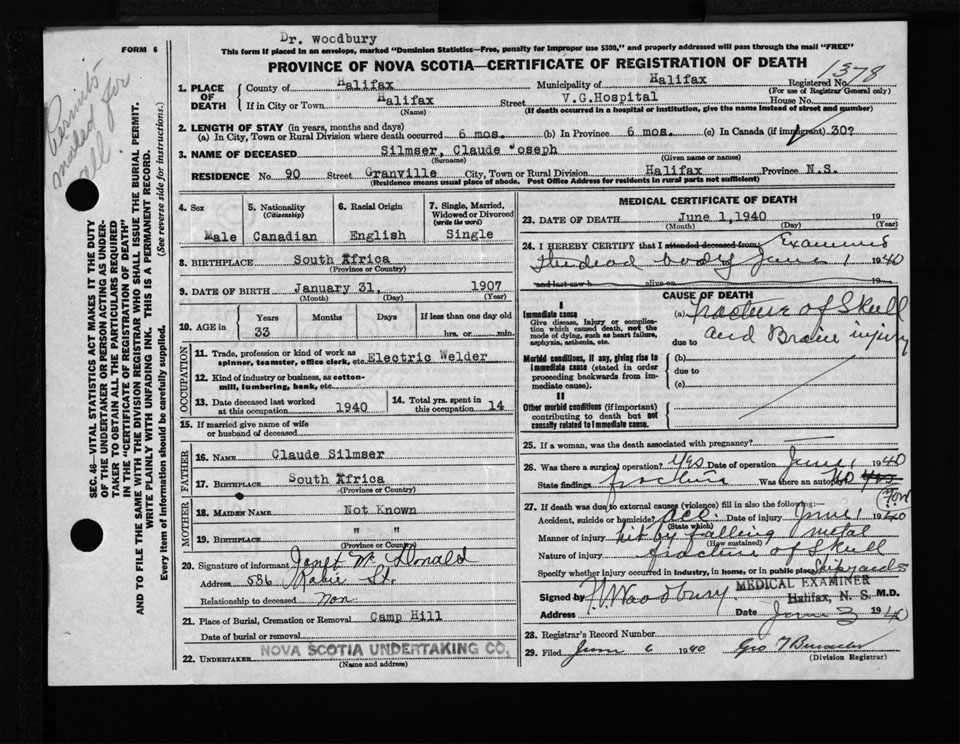 Dr. Woodbury
FORM 6
This form if placed in an envelope, marked "Dominion Statistics—Free, penalty for improper use $300," and properly addressed will pass through the mail "FREE"
PROVINCE OF NOVA SCOTIA—CERTIFICATE OF REGISTRATION OF DEATH
1378
Permits mailed for all.
SEC. 46—VITAL STATISTICS ACT MAKES IT THE DUTY
OF THE UNDERTAKER OR PERSON ACTING AS UNDER-
TAKER TO OBTAIN ALL THE PARTICULARS REQUIRED
IN THE "CERTIFICATE OF REGISTRATION OF DEATH"
AND TO FILE THE SAME WITH THE DIVISION REGISTRAR WHO SHALL ISSUE THE BURIAL PERMIT.
WRITE PLAINLY WITH UNFADING INK. THIS IS A PERMANENT RECORD.
Every item of information should be carefully supplied. (See reverse side for instructions.)
1. PLACE OF DEATH County of Halifax Municipality of Halifax Registered No.
(For use of Registrar General only)
If in City or Town Halifax Street V.G.Hospital House No.
(Name) (If death occurred in a hospital or institution, give the name instead of street and number)
2. LENGTH OF STAY (in years, months and days)
(a) In City, Town or Rural Division where death occurred 6 mos. (b) In Province 6 mos. (c) In Canada (if immigrant) 30?
3. NAME OF DECEASED Silmser, Claude Joseph
(Surname) (Given name or names)
RESIDENCE No. 90 Street Granville City, Town or Rural Division Halifax Province N.S.
(Residence means usual place of abode. Post Office Address for residents in rural parts not sufficient)
4. Sex Male
5. Nationality (Citizenship) Canadian
6. Racial Origin English
7. Single, Married, Widowed or Divorced (write the word) Single
8. BIRTHPLACE South Africa
(Province or Country)
9. DATE OF BIRTH January 31, 1907
(Month) (Day) (Year)
10. AGE in Years Months Days If less than one day old
33 hrs. or min.
OCCUPATION
11. Trade, profession or kind of work as
spinner, teamster, office clerk, etc. Electric Welder
12. Kind of industry or business, as cotton-
mill, lumbering, bank, etc.
13. Date deceased last worked
at this occupation 1940
14. Total yrs. spent in
this occupation 14
15. If married give name of wife
or husband of deceased
FATHER
16. NAME Claude Silmser
17. BIRTHPLACE South Africa
(Province or Country)
MOTHER
18. MAIDEN NAME Not Known
19. BIRTHPLACE " "
(Province or Country)
20. Signature of informant Janet McDonald
Address 536 Robie St.
Relationship to deceased Non
21. Place of Burial, Cremation or Removal Camp Hill
Date of burial or removal
22. UNDERTAKER NOVA SCOTIA UNDERTAKING CO.
(Name and address)
MEDICAL CERTIFICATE OF DEATH
23. DATE OF DEATH June 1,1940 19
(Month) (Day) (Year)
24. I HEREBY CERTIFY that I attended deceased from Examined
the dead body June 1 1940
and last saw h alive on 19
CAUSE OF DEATH
I
Immediate cause
Give disease, injury or complica-
tion which caused death, not the
mode of dying, such as heart failure,
asphyxia, asthenia, etc.
(a) Fracture of Skull
due to and Brain injury
Morbid conditions, if any, giving rise to
immediate cause (stated in order
proceeding backwards from im-
mediate cause).
(b)
due to
(c)
II
Other morbid conditions (if important)
contributing to death but not
causally related to immediate cause.
25. If a woman, was the death associated with pregnancy?
26. Was there a surgical operation? Yes Date of operation June 1 1940
State findings fracture Was there an autopsy? no yes
27. If death was due to external causes (violence) fill in also the following:
Accident, suicide or homicide? Acc. Date of injury June 1 1940
(State which)
Manner of injury hit by falling metal
(How sustained)
Nature of injury fracture of Skull
Specify whether injury occurred in Industry, in home, or in public place Shipyards
Signed by F.V. Woodbury M.D.
MEDICAL EXAMINER
Halifax, N. S.
Address Date June 3 1940
28. Registrar's Record Number
29. Filed June 6 1940 Geo
(Division Registrar)